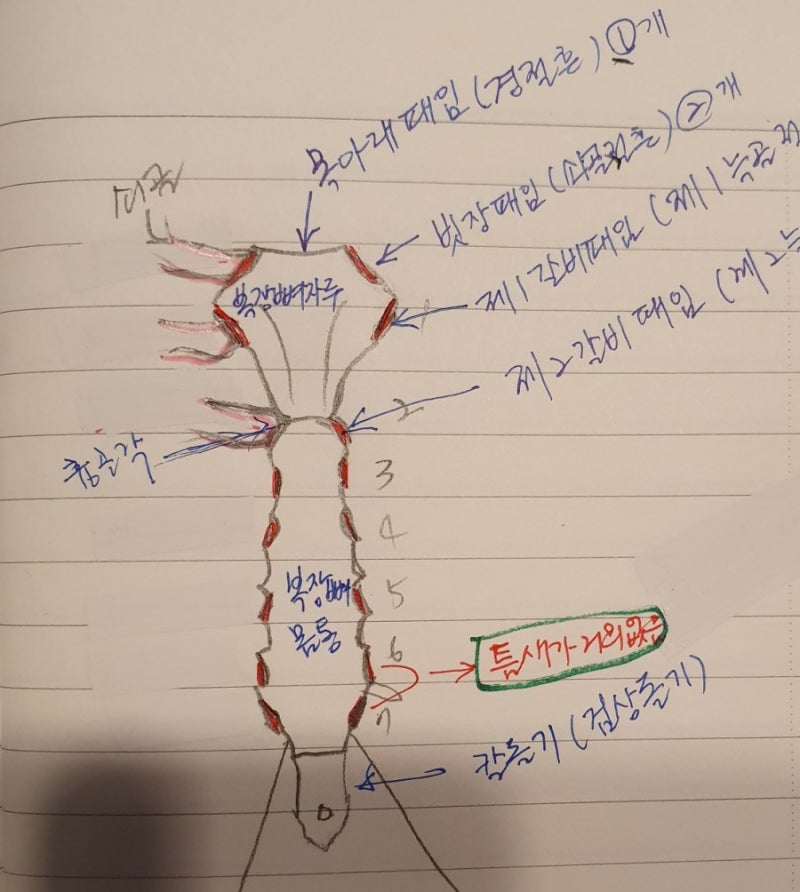 목아래패임(경절흔) ①개
빗장패임(쇄골절흔) ②개
제1갈비패임(제1늑골절
제2갈비패임(제2늑
쇄골
복장뼈자루
1
2
흉골각
3
4
5
복장뼈
몸통
6
틈새가 거의없음
7
칼돌기(검상돌기)